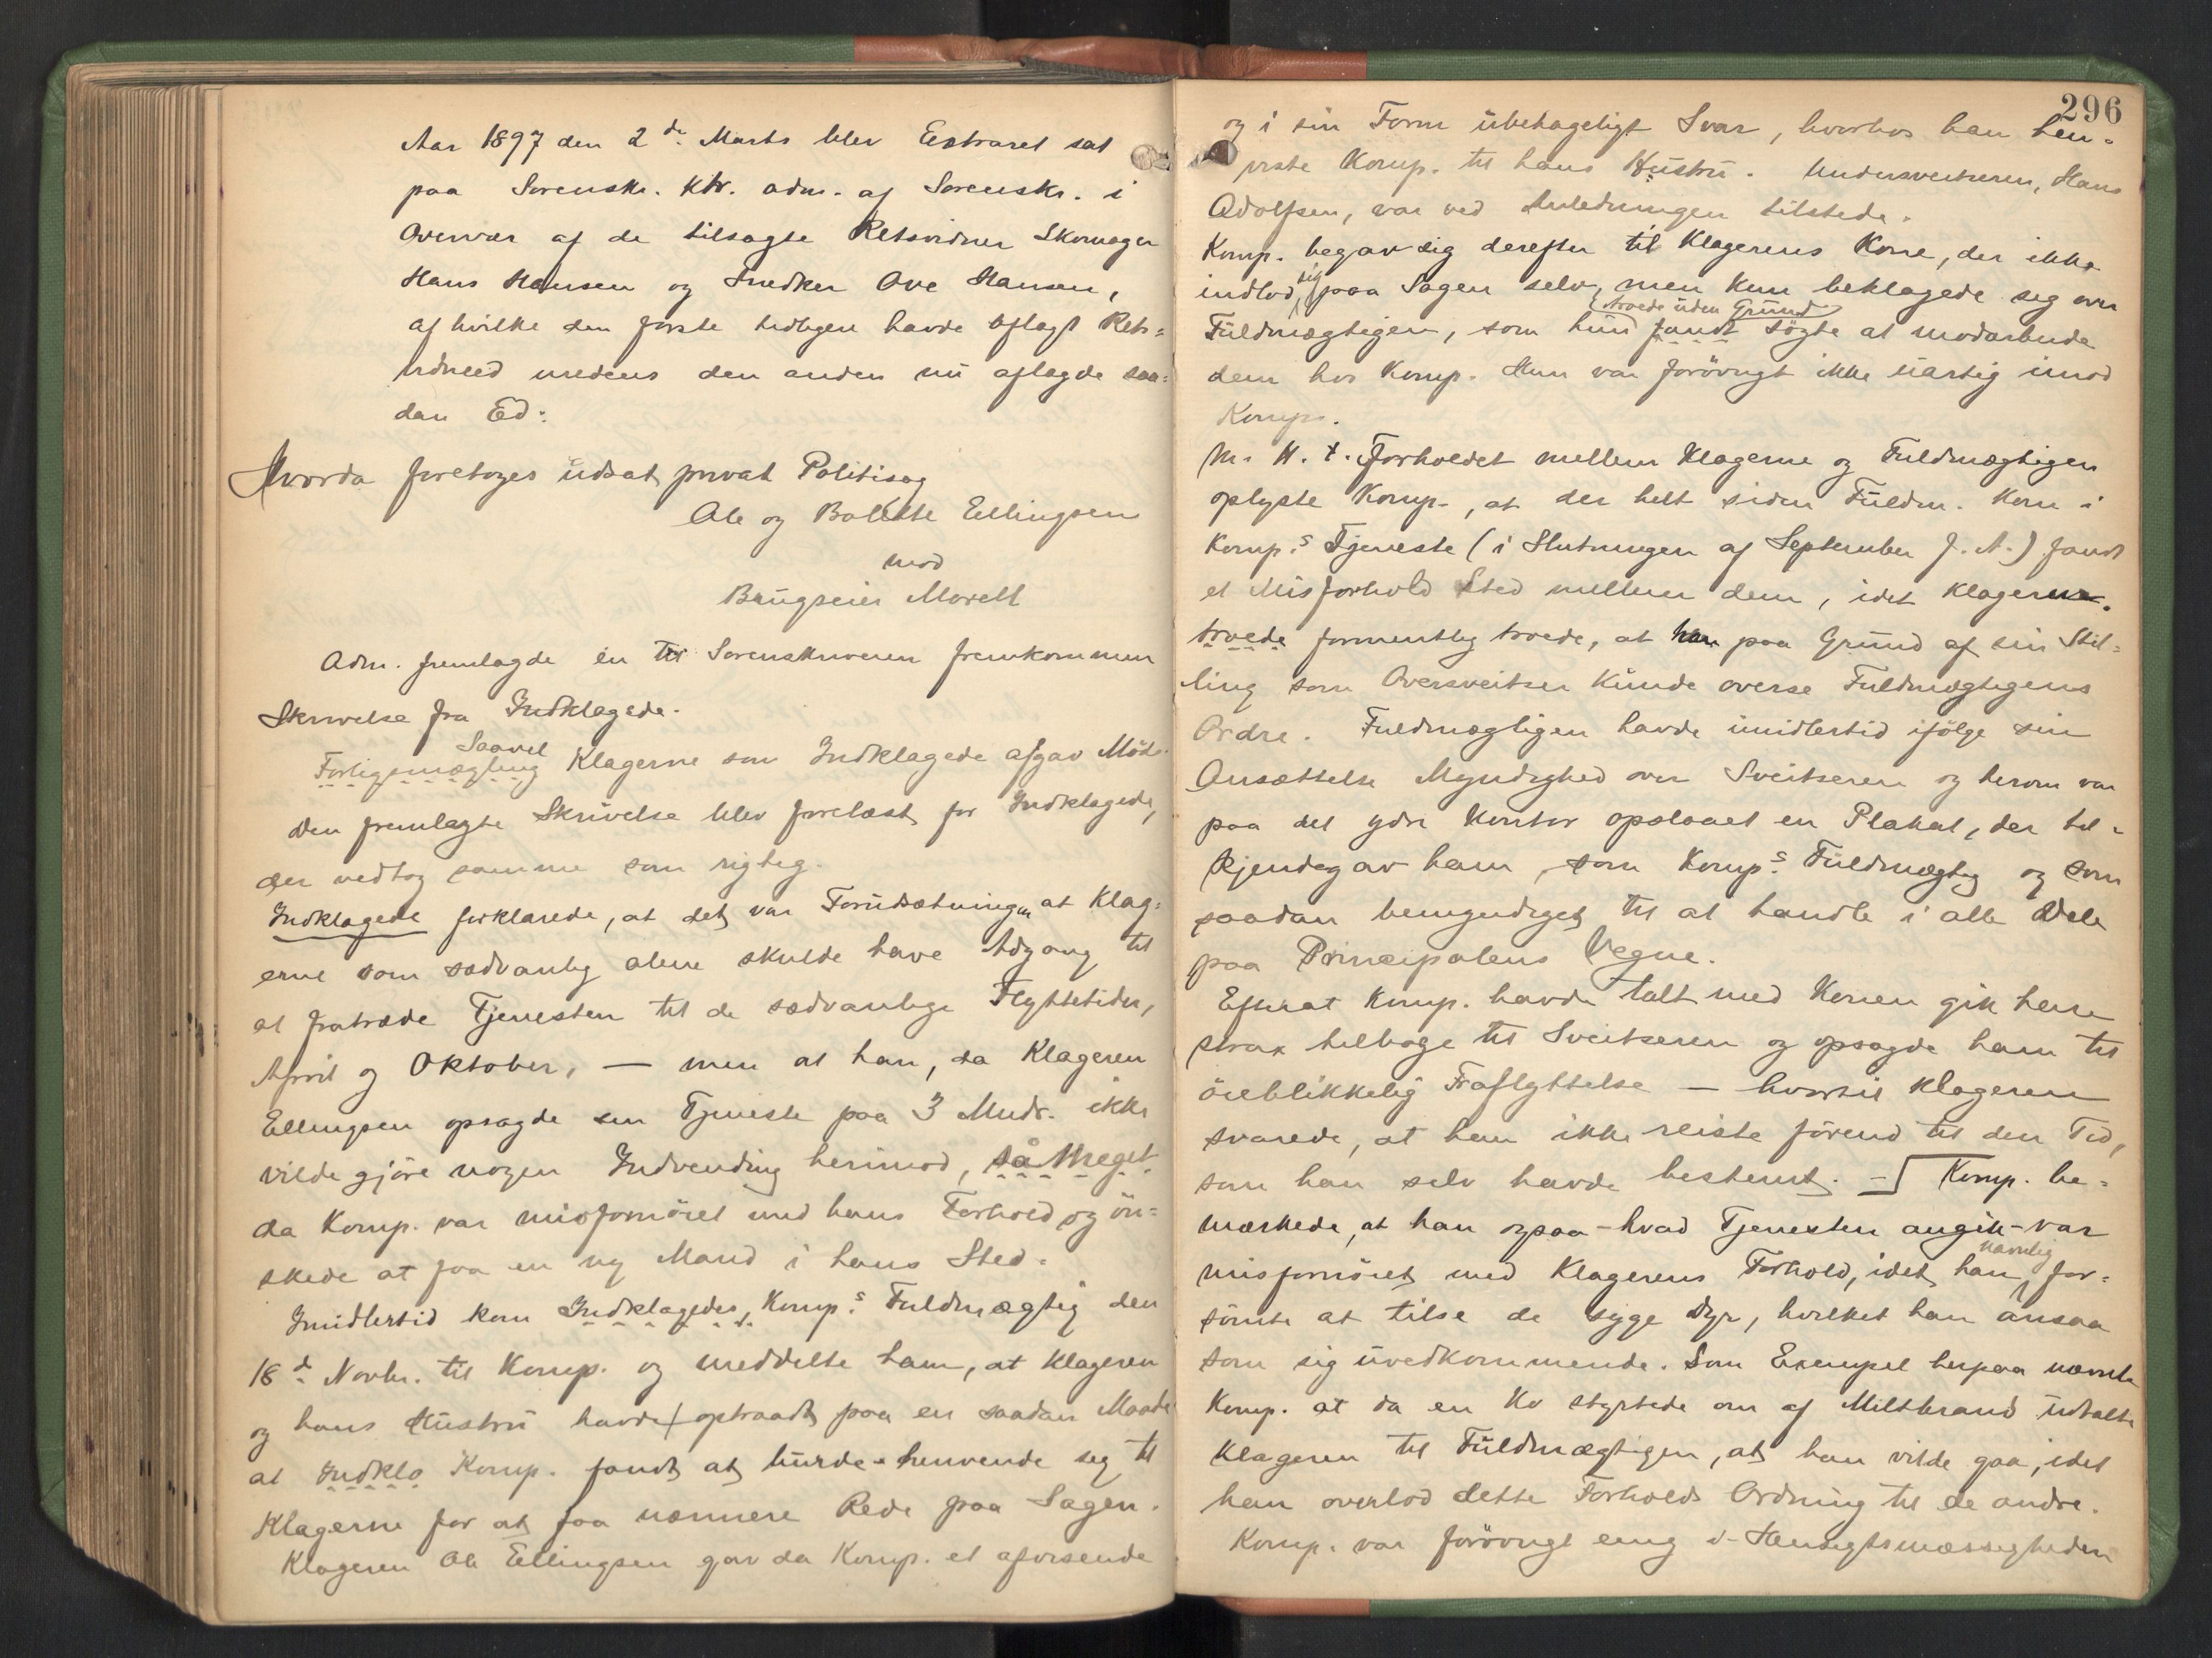 Aar 1897 den 2de Marts blev Extraret sat
paa Sorenskr. Ktr. adm. af Sorenskr. i
Overvær af de tilsagte Retsvidner Skomager
Hans Hansen og Snedker Ove Hansen,
af hvilke den første tidligere havde aflagt Rets=
vidneed medens den anden nu aflagde saa=
dan Ed:
Hvorda foretoges udsat privat Politisag
Ole og Bolette Ellingsen
mod
Brugseier Morell
Adm. fremlagde en til Sorenskriveren fremkommen
Skrivelse fra Indklagede.
Saavel
Forligsmægling Klagerne som Indklagede afgav Møde.
Den fremlagte Skrivelse blev forelæst for Indklagede,
der vedtog samme som rigtig.
Indklagede forklarede, at det var Forudsætningen at Klag=
erne som sædvanlig alene skulde have Adgang til
at fratræde Tjenesten til de sædvanlige Flyttetider,
April og Oktober, — men at han, da Klageren
Ellingsen opsagde sin Tjeneste paa 3 Mndr. ikke
vilde gjøre nogen Indvending herimod, så meget
da Komp. var misfornöiet med hans Forhold og ön=
skede at faa en ny Mand i hans Sted.
Imidlertid kom Indklagedes, Komp.s Fuldmægtig den
18de Novbr. til Komp. og meddelte ham, at Klageren
og hans Hustru havde optraadt paa en saadan Maade
at Indkla Komp. fandt at burde henvende sig til
Klagerne for at faa nærmere Rede paa Sagen.
Klageren Ole Ellingsen gav da Komp. et afvisende
296
og i sin Form ubehageligt Svar, hvorhos han hen=
viste Komp. til hans Hustru. Undersveitseren, Hans
Adolfsen, var ved Anledningen tilstede.
Komp. begav sig derefter til Klagerens Kone, der ikke
indlod sig paa Sagen selv, men kun beklagede sig over
troede uden Grund
Fuldmægtigen, som hun fandt søgte at modarbeide
dem hos Komp. Hun var forövrigt ikke uartig imod
Komp.
M. H. t. Forholdet mellem Klagerne og Fuldmægtigen
oplyste Komp., at der helt siden Fuldm. kom i
Komp.s Tjeneste (i Slutningen af September f. A.) fandt
et Misforhold Sted mellem dem, idet Klageren
troede formentlig troede, at han paa Grund af sin Stil=
ling som Oversveitser kunde overse Fuldmægtigens
Ordre. Fuldmægtigen havde imidlertid ifölge sin
Ansættelse Myndighed over Sveitseren og herom var
paa det ydre Kontor opslaaet en Plakat, der til=
kjendegav ham, som Komp.s Fuldmægtig og som
saadan bemyndiget til at handle i alle Dele
paa Principalens Vegne.
Efterat Komp. havde talt med Konen gik han
strax tilbage til Sveitseren og opsagde ham til
öieblikkelig Fraflyttelse — hvortil Klageren
svarede, at han ikke reiste förend til den Tid,
som han selv havde bestemt. — Komp. be=
mærkede, at han ogsaa – hvad Tjenesten angik – var
misfornöiet med Klagerens Forhold, idet han nemlig for=
sömte at tilse de syge Dyr, hvilket han ansaa
som sig uvedkommende. Som Exempel herpaa nævnte
Komp. at da en Ko styrtede om af Miltbrand udtalte
Klageren til Fuldmægtigen, at han vilde gaa, idet
han overlod dette Forholds Ordning til de andre.
Komp. var forövrigt enig i Hensigtsmæssigheden